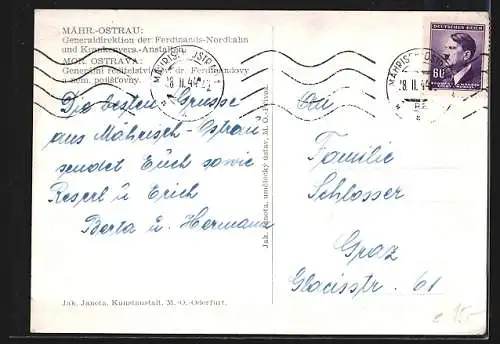 MÄHR.-OSTRAU:
Generaldirektion der Ferdinands-Nordbahn
und Krankenvers.-Anstalten
MOR. OSTRAVA:
Generální ředitelství dr. Ferdinandovy
a nem. pojišťovny.
MÄHRISCH OSTRAU 1
8. II. 44
MÄHRISCH OSTRAU
8. II. 44
DEUTSCHES REICH
60
Die besten Grüsse
aus Mährisch-Ostrau
sendet Euch sowie
Reserl u Erich
Berta u. Hermann
An
Familie
Schlosser
Graz
Glacisstr. 61
Jak. Janota, umělecký ústav, M. O.-Přívoz.
Jak. Janota, Kunstanstalt, M.-O.-Oderfurt.